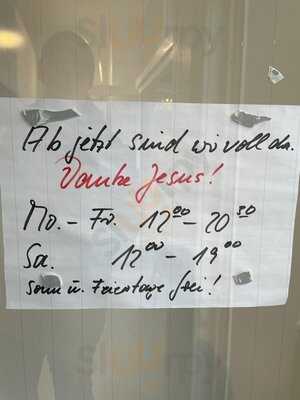 Ab jetzt sind wir voll da.
Danke Jesus!
Mo. - Fr. 12⁰⁰ - 20³⁰
Sa. 12⁰⁰ - 19⁰⁰
Sonn u. Feiertage frei!